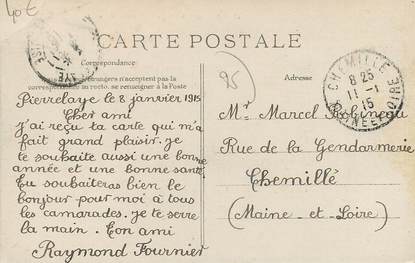 40€
CARTE POSTALE
Correspondance
étrangers n'acceptent pas
correspondance au recto. se renseigner à la Poste
Adresse
95
CHEMILLÉ
8 25
11 - 1
15
Pierrelaye le 8 janvier 1915
Cher ami
J'ai reçu ta carte qui m'a
fait grand plaisir. je
te souhaite aussi une bonne
année et une bonne santé
Tu souhaiteras bien le
bonjour pour moi à tous
les camarades. je te serre
la main. Ton ami
Raymond Fournier
Mr Marcel Robineau
Rue de la Gendarmerie
Chemillé
(Maine - et - Loire)